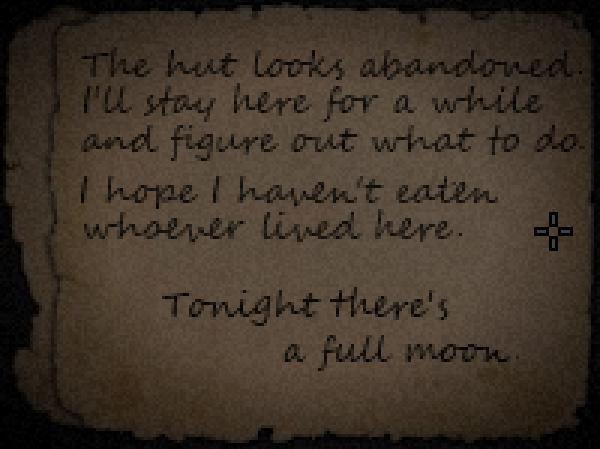 The hut looks abandoned.
I'll stay here for a while
and figure out what to do.
I hope I haven't eaten
whoever lived here.
Tonight there's
a full moon.